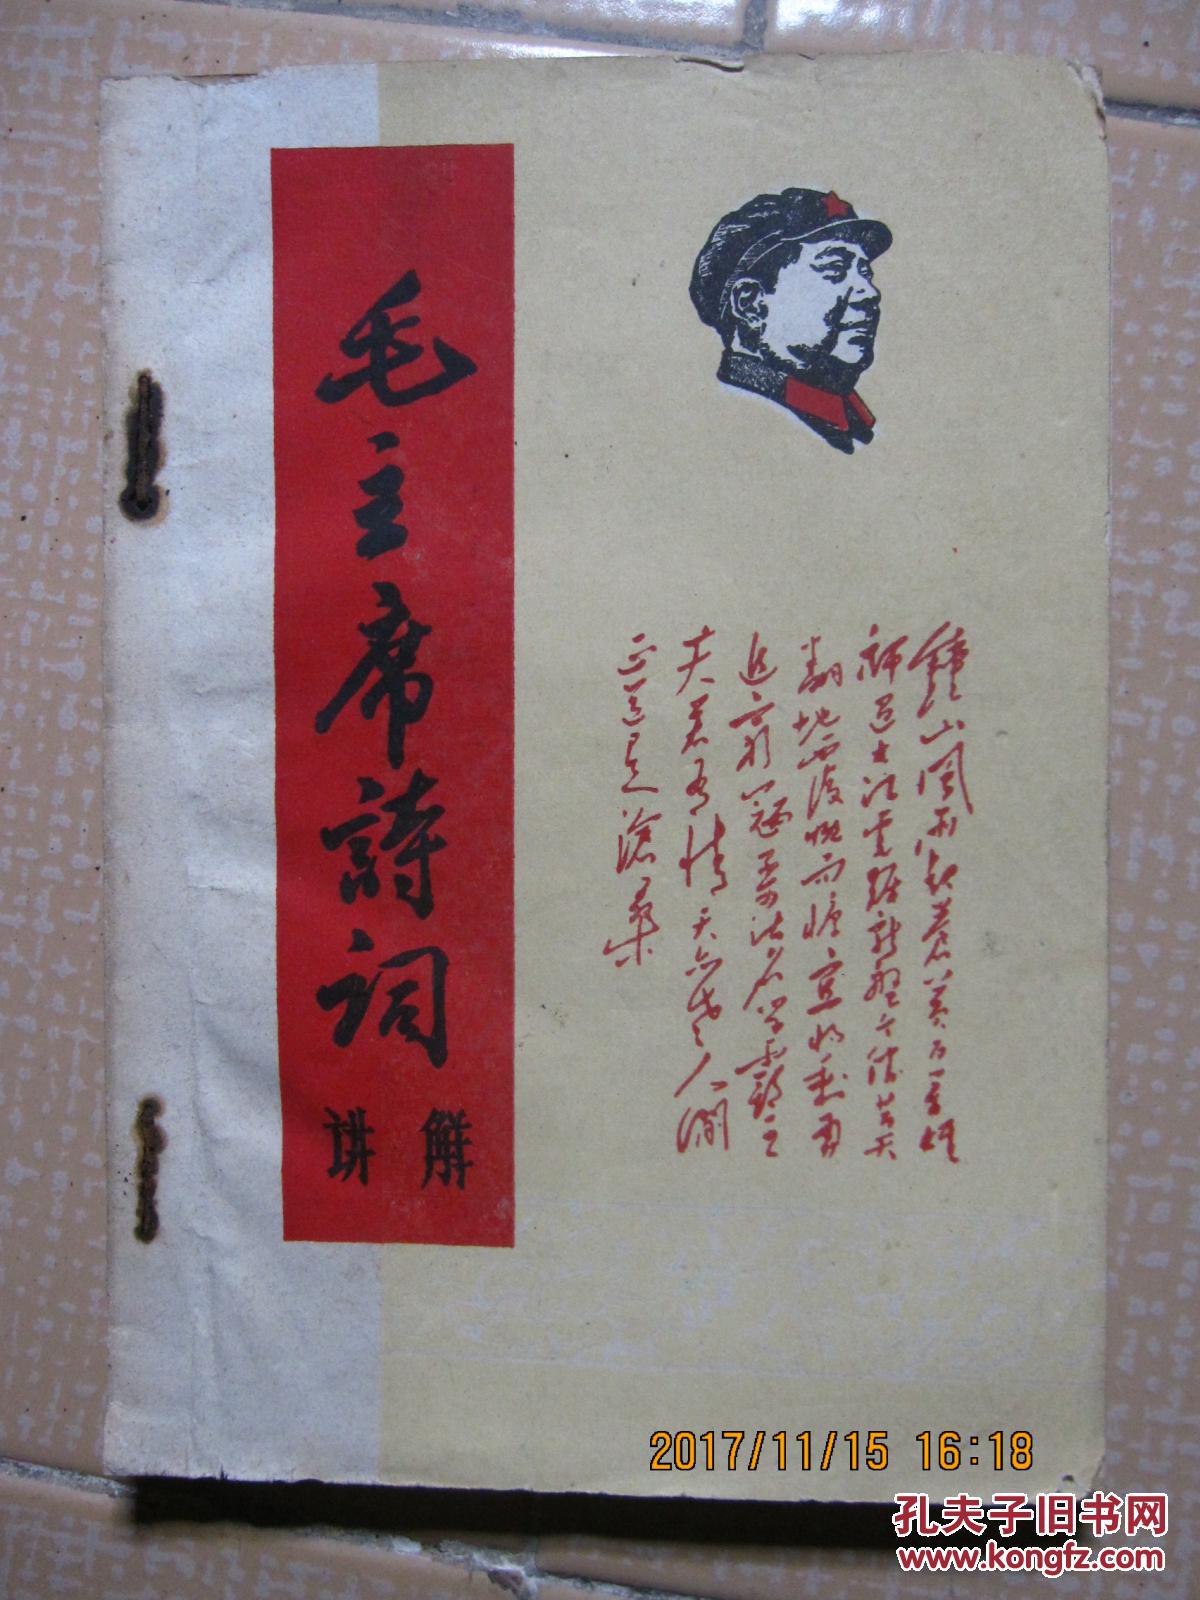 毛主席詩詞
讲解
鐘山風雨起蒼黄百万雄
師過大江虎踞龍盤今勝昔天
翻地覆慨而慷宜將剩勇
追窮寇不可沽名學霸王
天若有情天亦老人間
正道是滄桑
2017/11/15 16:18
孔夫子旧书网
www.kongfz.com